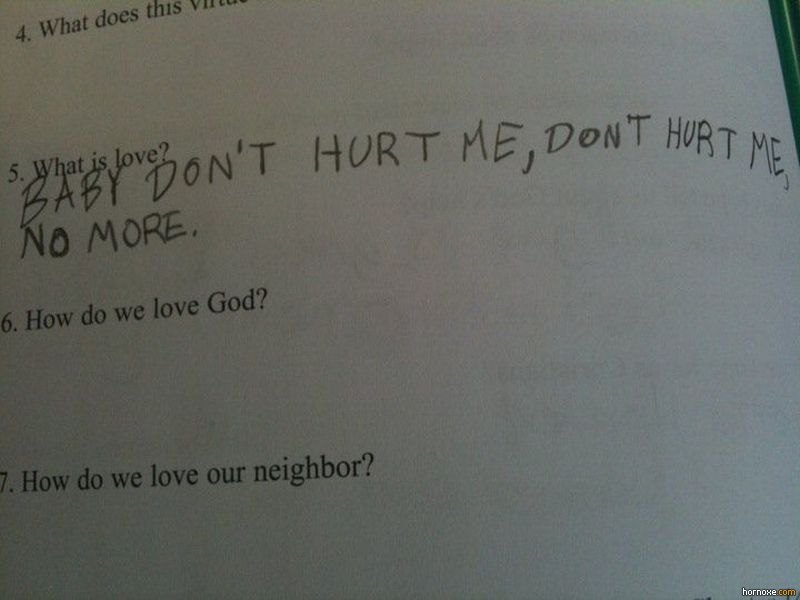 4. What does this virtue
5. What is love?
BABY DON'T HURT ME, DON'T HURT ME,
NO MORE.
6. How do we love God?
7. How do we love our neighbor?
hornoxe.com